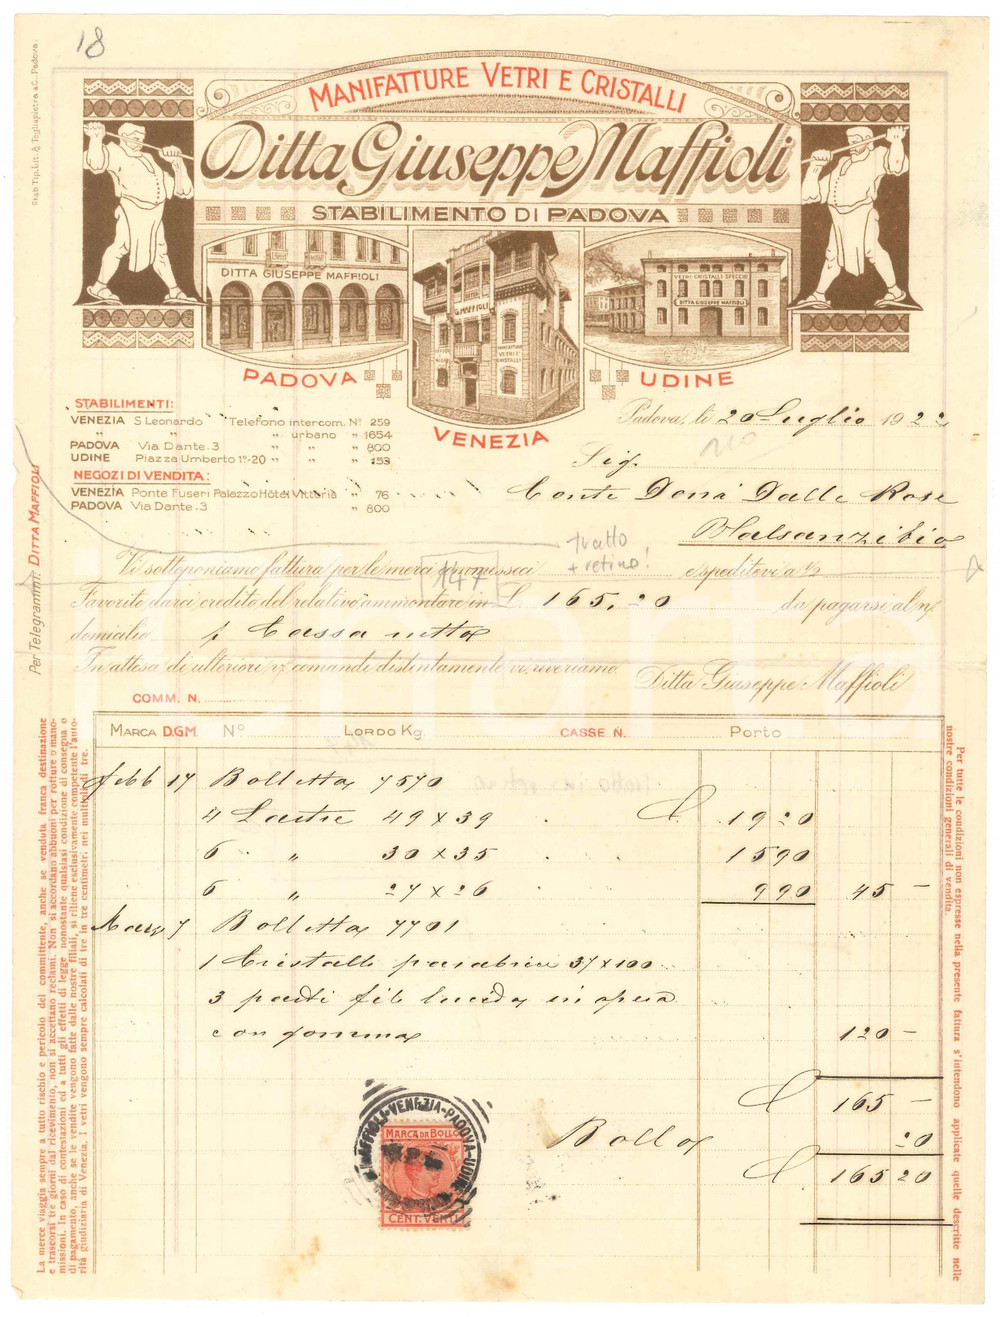 18
Stab. Tip. Lit. G. Tagliapietra & C. Padova.
MANIFATTURE VETRI E CRISTALLI
Ditta Giuseppe Maffioli
STABILIMENTO DI PADOVA
DITTA GIUSEPPE MAFFIOLI
G. MAFFIOLI
MANIFATTURE
VETRI E
CRISTALLI
VETRI-CRISTALLI-SPECCHI
DITTA GIUSEPPE MAFFIOLI
PADOVA
VENEZIA
UDINE
STABILIMENTI:
VENEZIA S. Leonardo Telefono intercom. N° 259
" " " urbano " 1654
PADOVA Via Dante. 3 " " " 800
UDINE Piazza Umberto 1°-20 " " " 153
NEGOZI DI VENDITA:
VENEZIA Ponte Fuseri Palazzo Hôtel Vittoria " 76
PADOVA Via Dante. 3 " 800
Padova, li 20 Luglio 1922
Sig.
Conte Donà Dalle Rose
Valsanzibio
tratto
+ retino!
147
Per Telegrammi: DITTA MAFFIOLI
Vi sottoponiamo fattura per le merci commesseci e speditevi a ½
Favorite darci credito del relativo ammontare in L. 165,20 da pagarsi al n/
domicilio p Cassa netto
In attesa di ulteriori v/ comandi distintamente vi riveriamo.
Ditta Giuseppe Maffioli
COMM. N.
MARCA D.GM. N° LORDO Kg. CASSE N. PORTO
febb 17 Bolletta 7570
4 Lastre 49 x 39 L 1920
6 " 30 x 35 1590
6 " 27 x 26 990 45 -
Marzo 7 Bolletta 7701
1 Cristallo parabrise 37 x 100
3 parti fili lucida in opera
con gomma 120 -
L 165 -
Bollo 20
L 165 20
MAFFIOLI-VENEZIA-PADOVA-UDINE
MARCA DA BOLLO
CENT. VENTI
La merce viaggia sempre a tutto rischio e pericolo del committente, anche se venduta franca destinazione
e trascorsi tre giorni dal ricevimento, non si accettano reclami. Non si accordano abbuoni per rotture o mano-
missioni. In caso di contestazioni ed a tutti gli effetti di legge nonostante qualsiasi condizione di consegna o
di pagamento, anche se le vendite vengono fatte dalle nostre filiali, si ritiene esclusivamente competente l'auto-
rità giudiziaria di Venezia. I vetri vengono sempre calcolati di tre in tre centimetri nei multipli di tre.
Per tutte le condizioni non espresse nella presente fattura s'intendono applicate quelle descritte nelle
nostre condizioni generali di vendita.